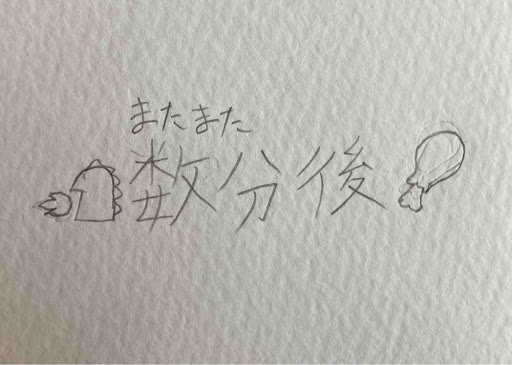 またまた
数分後